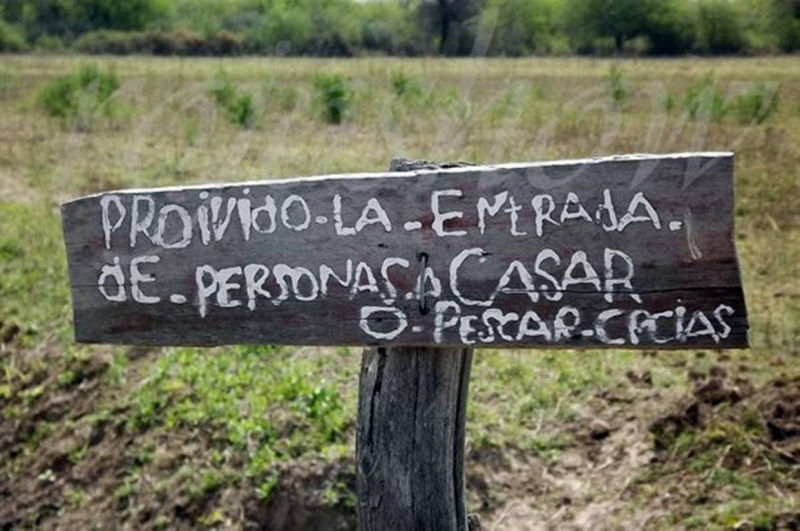 PROIVIDO-LA-ENTRADA.
DE-PERSONAS.A CASAR
O-PESCAR-CRCIAS